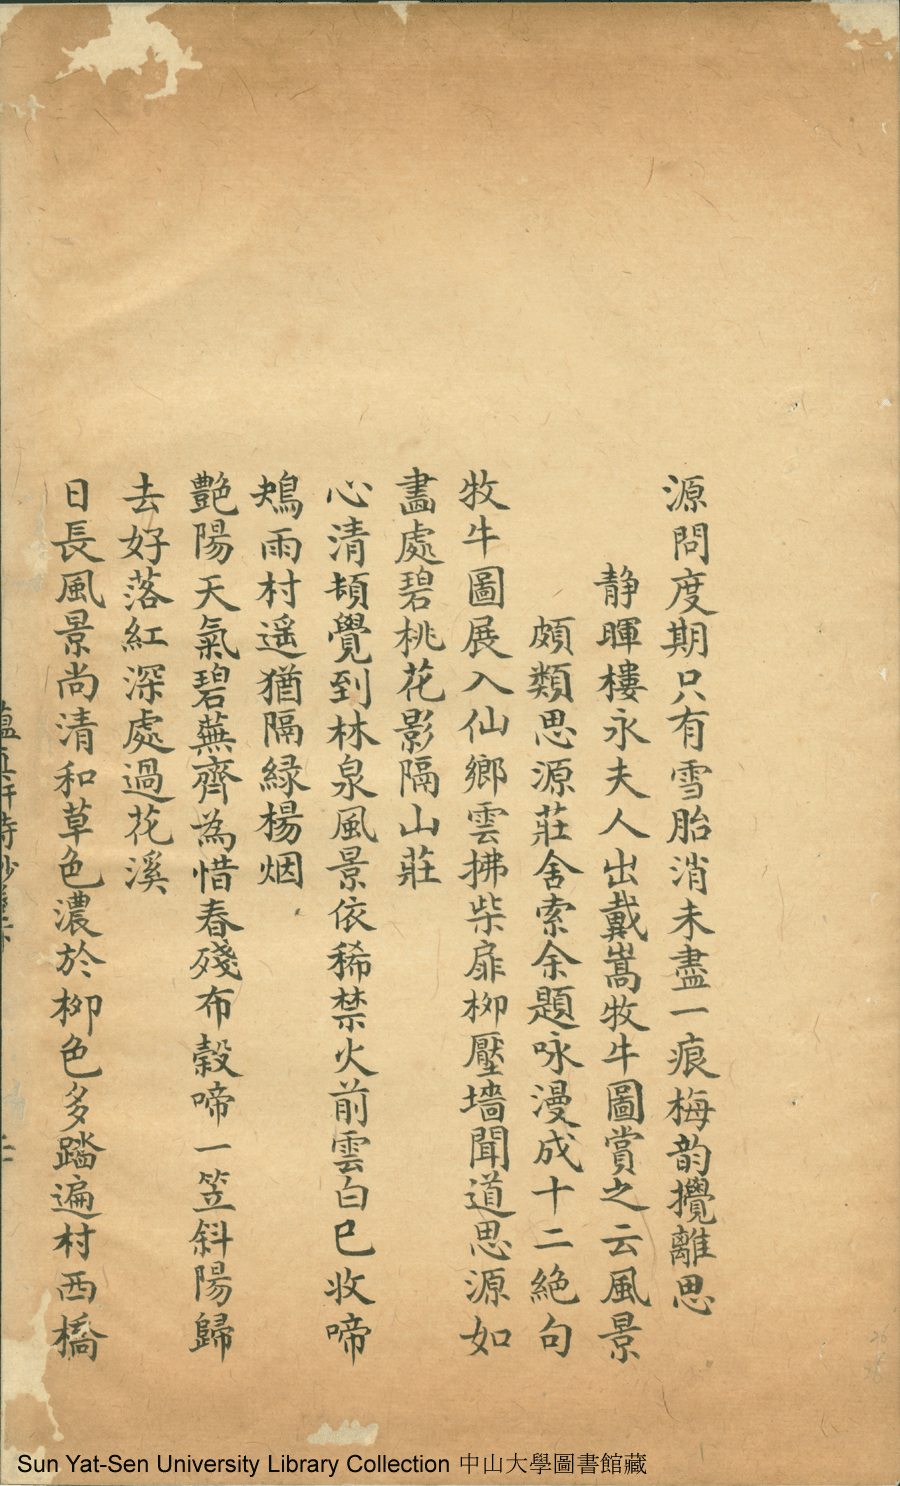 源問度期只有雪胎消未盡一痕梅韵攪離思
静暉樓永夫人出戴嵩牧牛圖賞之云風景
頗類思源莊舍索余題咏漫成十二絶句
牧牛圖展入仙鄉雲拂柴扉柳壓墻聞道思源如
畵處碧桃花影隔山莊
心清頓覺到林泉風景依稀禁火前雲白巳收啼
鴂雨村遥猶隔緑楊烟
艶陽天氣碧蕪齊為惜春殘布穀啼一笠斜陽歸
去好落紅深處過花溪
日長風景尚清和草色濃於柳色多踏遍村西橋
Sun Yat-Sen University Library Collection 中山大學圖書館藏